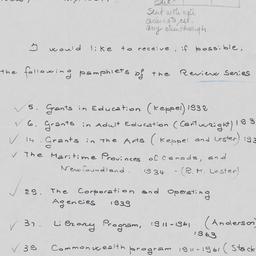 Sent with apl
I would like to receive, if possible,
the following pamphlets of the Review Series
✓ 5. Grants in Education (Keppel) 1932
✓ 6. Grants in Adult Education (Cartwright) 193
✓ 14. Grants in the Arts (Keppel and Lester) 193
✓ The Maritime Provinces of Canada, and
Newfoundland. 1934 - (R. M. Lester)
✓ 29. The Corporation and Operating
Agencies 1939
✓ 37. Library Program, 1911-1961 (Anderson)
1963
✓ 38. Commonwealth program 1911-1961 (Stack